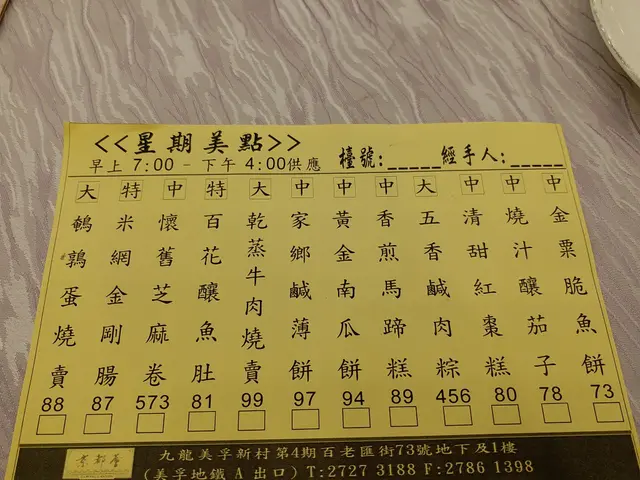 <<星期美點>>
早上 7:00 - 下午 4:00供應
檯號:_____經手人:_____
大 鵪鶉蛋燒賣 88
特 米網金剛腸 87
中 懷舊芝麻卷 573
特 百花釀魚肚 81
大 乾蒸牛肉燒賣 99
中 家鄉鹹薄餅 97
中 黃金南瓜餅 94
中 香煎馬蹄糕 89
大 五香鹹肉粽 456
中 清甜紅棗糕 80
中 燒汁釀茄子 78
中 金粟脆魚餅 73
九龍美孚新村第4期百老匯街73號地下及1樓
(美孚地鐵 A 出口) T:2727 3188 F:2786 1398